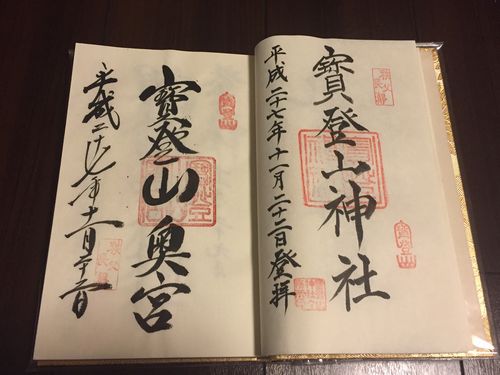 寳登山神社
平成二十七年十一月二十二日登拝
寳登山奥宮
平成二十七年十一月二十二日